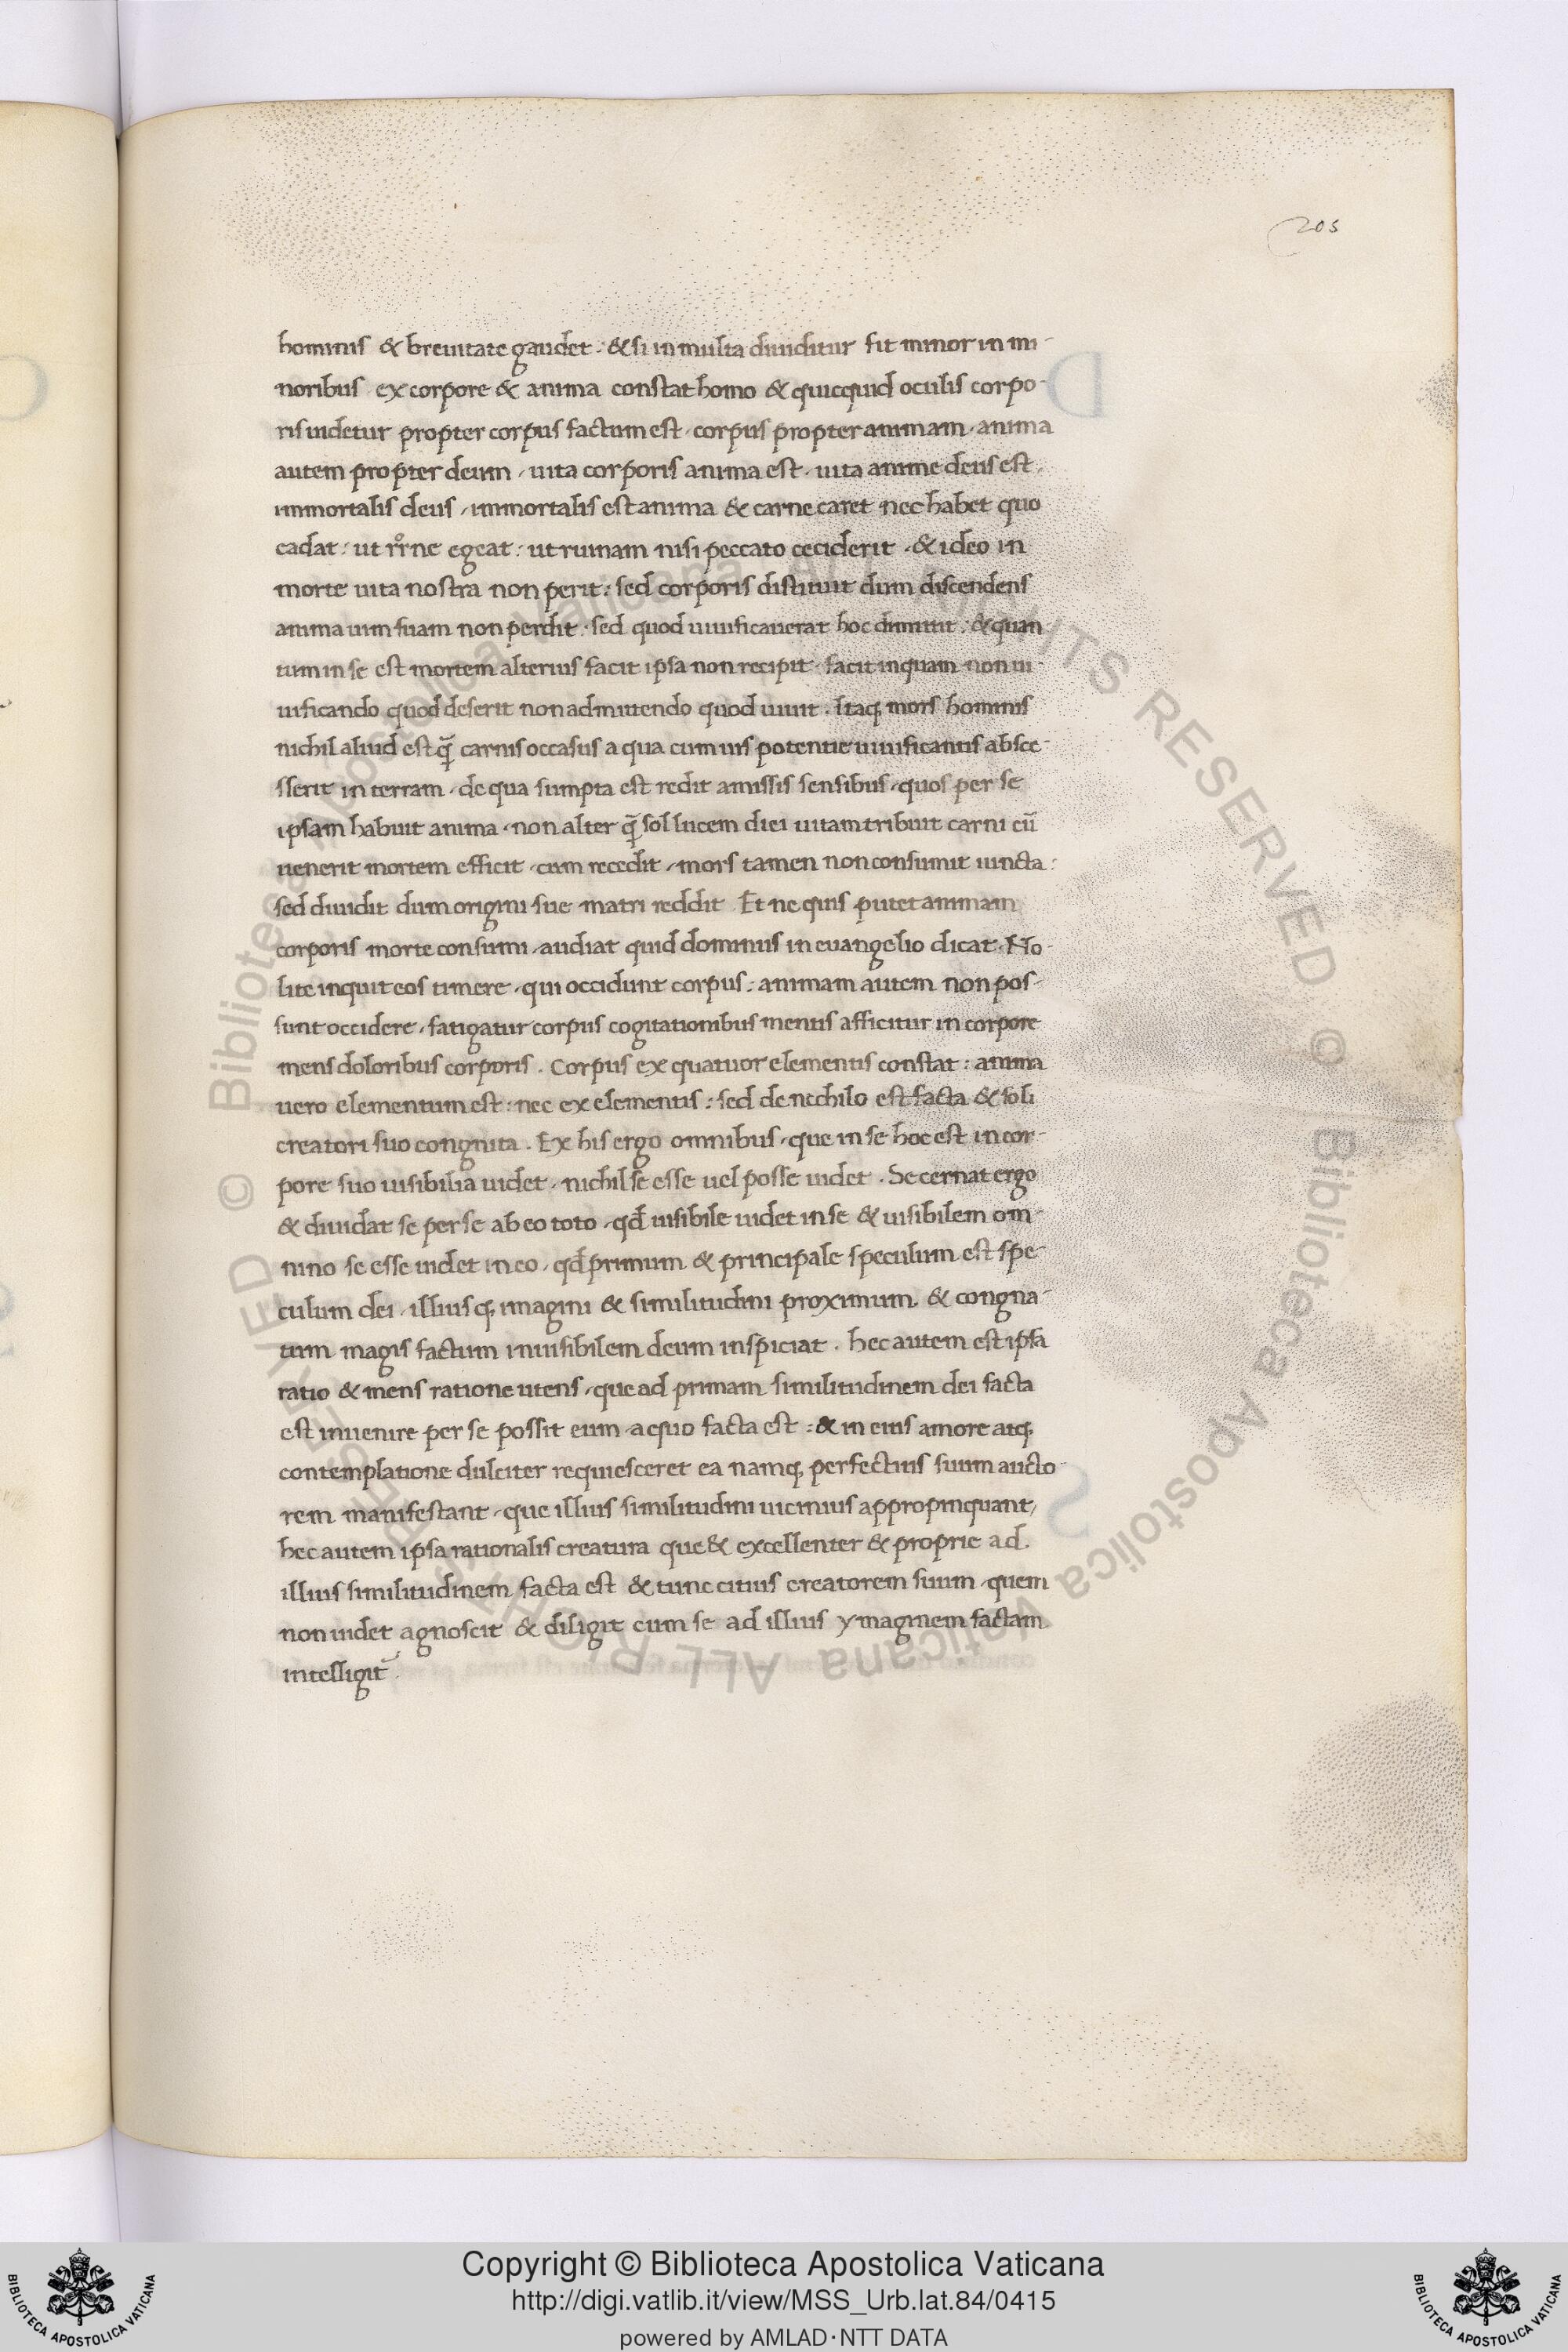 205
hominis & breuitate gaudet : & si in multa diuiditur fit minor in mi-
noribus ex corpore & anima constat homo & quicquid oculis corpo-
ris uidetur propter corpus factum est · corpus propter animam · anima
autem propter deum , uita corporis anima est · uita anime deus est .
immortalis deus , immortalis est anima & carne caret nec habet quo
cadat : ut egeat : ut ruinam nisi peccato ceciderit · & ideo in
morte uita nostra non perit : sed corporis distituit dum discendens
anima uim suam non perdit · sed quod uiuificauerat hoc dimittit : & quan
tum in se est mortem alterius facit ipsa non recipit · facit inquam non ui-
uificando quod deserit non admittendo quod uiuit . Itaq; mors hominis
nichil aliud est q̄ carnis occasus a qua cum uis potentie uiuificantis absce-
sserit in terram · de qua sumpta est redit amissis sensibus , quos per se
ipsam habuit anima · non alter q̄ sol lucem diei uitam tribuit carni cū
uenerit mortem efficit , cum recedit , mors tamen non consumit uincta :
sed diuidit dum origini sue matri reddit Et ne quis putet animam
corporis morte consumi , audiat quid dominus in euangelio dicat · No-
lite inquit eos timere , qui occidunt corpus : animam autem non pos-
sunt occidere , fatigatur corpus cogitationibus mentis afficitur in corpore
mens doloribus corporis . Corpus ex quatuor elementis constat : anima
uero elementum est : nec ex elementis : sed de nechilo est facta & soli
creatori suo congnita . Ex his ergo omnibus , que in se hoc est in cor-
pore suo uisibilia uidet , nichil se esse uel posse uidet . Secernat ergo
& diuidat se per se ab eo toto , qđ uisibile uidet in se & uisibilem om-
nino se esse uidet in eo , qđ primum & principale speculum est spe-
culum dei , illiusq; imagini & similitudini proximum & congna-
tum magis factum inuisibilem deum inspiciat . hec autem est ipsa
ratio & mens ratione utens , que ad primam similitudinem dei facta
est inuenire per se possit eum a quo facta est : & in eius amore atq;
contemplatione dulciter requiesceret ea namq; perfectius suum aucto-
rem manifestant , que illius similitudini uicinius appropinquant ,
hec autem ipsa rationalis creatura que & excellenter & proprie ad
illius similitudinem facta est & tunc citius creatorem suum , quem
non uidet agnoscit & diligit cum se ad illius ymaginem factam
intelligit .
© Biblioteca Apostolica Vaticana ALL RIGHTS RESERVED © Biblioteca Apostolica Vaticana ALL RIGHTS RESERVED
Copyright © Biblioteca Apostolica Vaticana
http://digi.vatlib.it/view/MSS_Urb.lat.84/0415
powered by AMLAD·NTT DATA
BIBLIOTECA APOSTOLICA VATICANA
BIBLIOTECA APOSTOLICA VATICANA